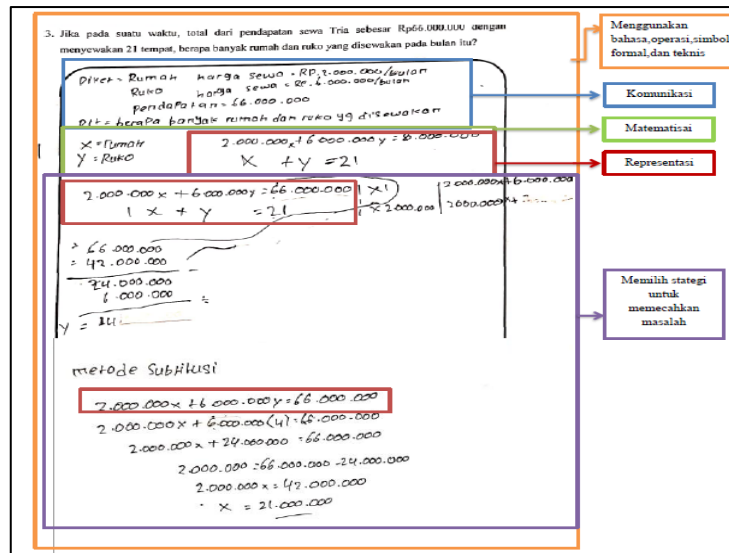 3. Jika pada suatu waktu, total dari pendapatan sewa Tria sebesar Rp66.000.000 dengan
menyewakan 21 tempat, berapa banyak rumah dan ruko yang disewakan pada bulan itu?
Diket = Rumah harga sewa = RP. 2.000.000/bulan
Ruko harga sewa = Rp. 6.000.000/bulan
Pendapatan = 66.000.000
Dit = berapa banyak rumah dan ruko yg disewakan
X = rumah
Y = Ruko
2.000.000x + 6.000.000y =
X + y = 21
2.000.000x + 6.000.000y = 66.000.000 | x 1
1 x + y = 21 | x 2.000.000
2.000.000x + 6.000.000
2.000.000x +
= 66.000.000
= 42.000.000
24.000.000
6.000.000 =
Y =
metode Subtitusi
2.000.000x + 6.000.000y = 66.000.000
2.000.000x + 6.000.000(4) = 66.000.000
2.000.000x + 24.000.000 = 66.000.000
2.000.000 = 66.000.000 - 24.000.000
2.000.000x = 42.000.000
x = 21.000.000
Menggunakan
bahasa,operasi,simbol
formal,dan teknis
Komunikasi
Matematisai
Representasi
Memilih stategi
untuk
memecahkan
masalah